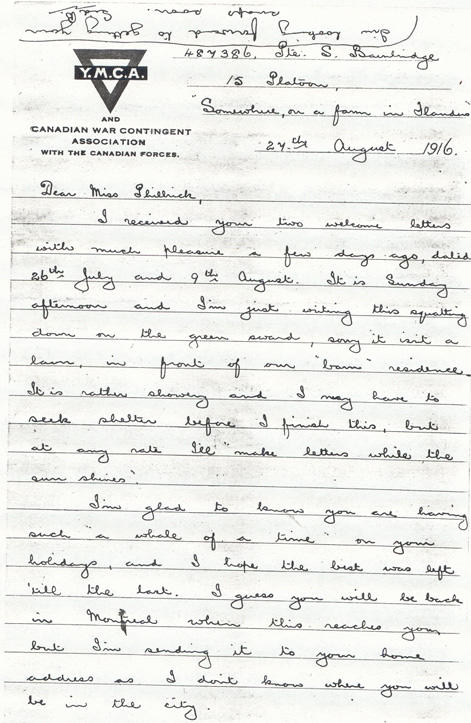 I'm looking forward to getting your
photo soon.
487386, Pte. S. Bainbridge
15 Platoon,
"Somewhere, on a farm in Flanders
27th August 1916.
Y.M.C.A.
AND
CANADIAN WAR CONTINGENT
ASSOCIATION
WITH THE CANADIAN FORCES.
Dear Miss Philbrick,
I received your two welcome letters
with much pleasure a few days ago, dated
26th July and 9th August. It is Sunday
afternoon and I'm just writing this squatting
down on the green sward, sorry it isn't a
lawn, in front of our "barn" residence.
It is rather showery and I may have to
seek shelter before I finish this, but
at any rate I'll "make letters while the
sun shines".
I'm glad to know you are having
such "a whale of a time" on your
holidays, and I hope the best was left
'till the last. I guess you will be back
in Montreal when this reaches you,
but I'm sending it to your home
address as I don't know where you will
be in the city.